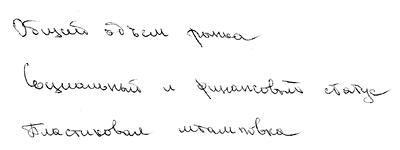 Общий объем рынка
Социальный и финансовый статус
Пластиковая штамповка